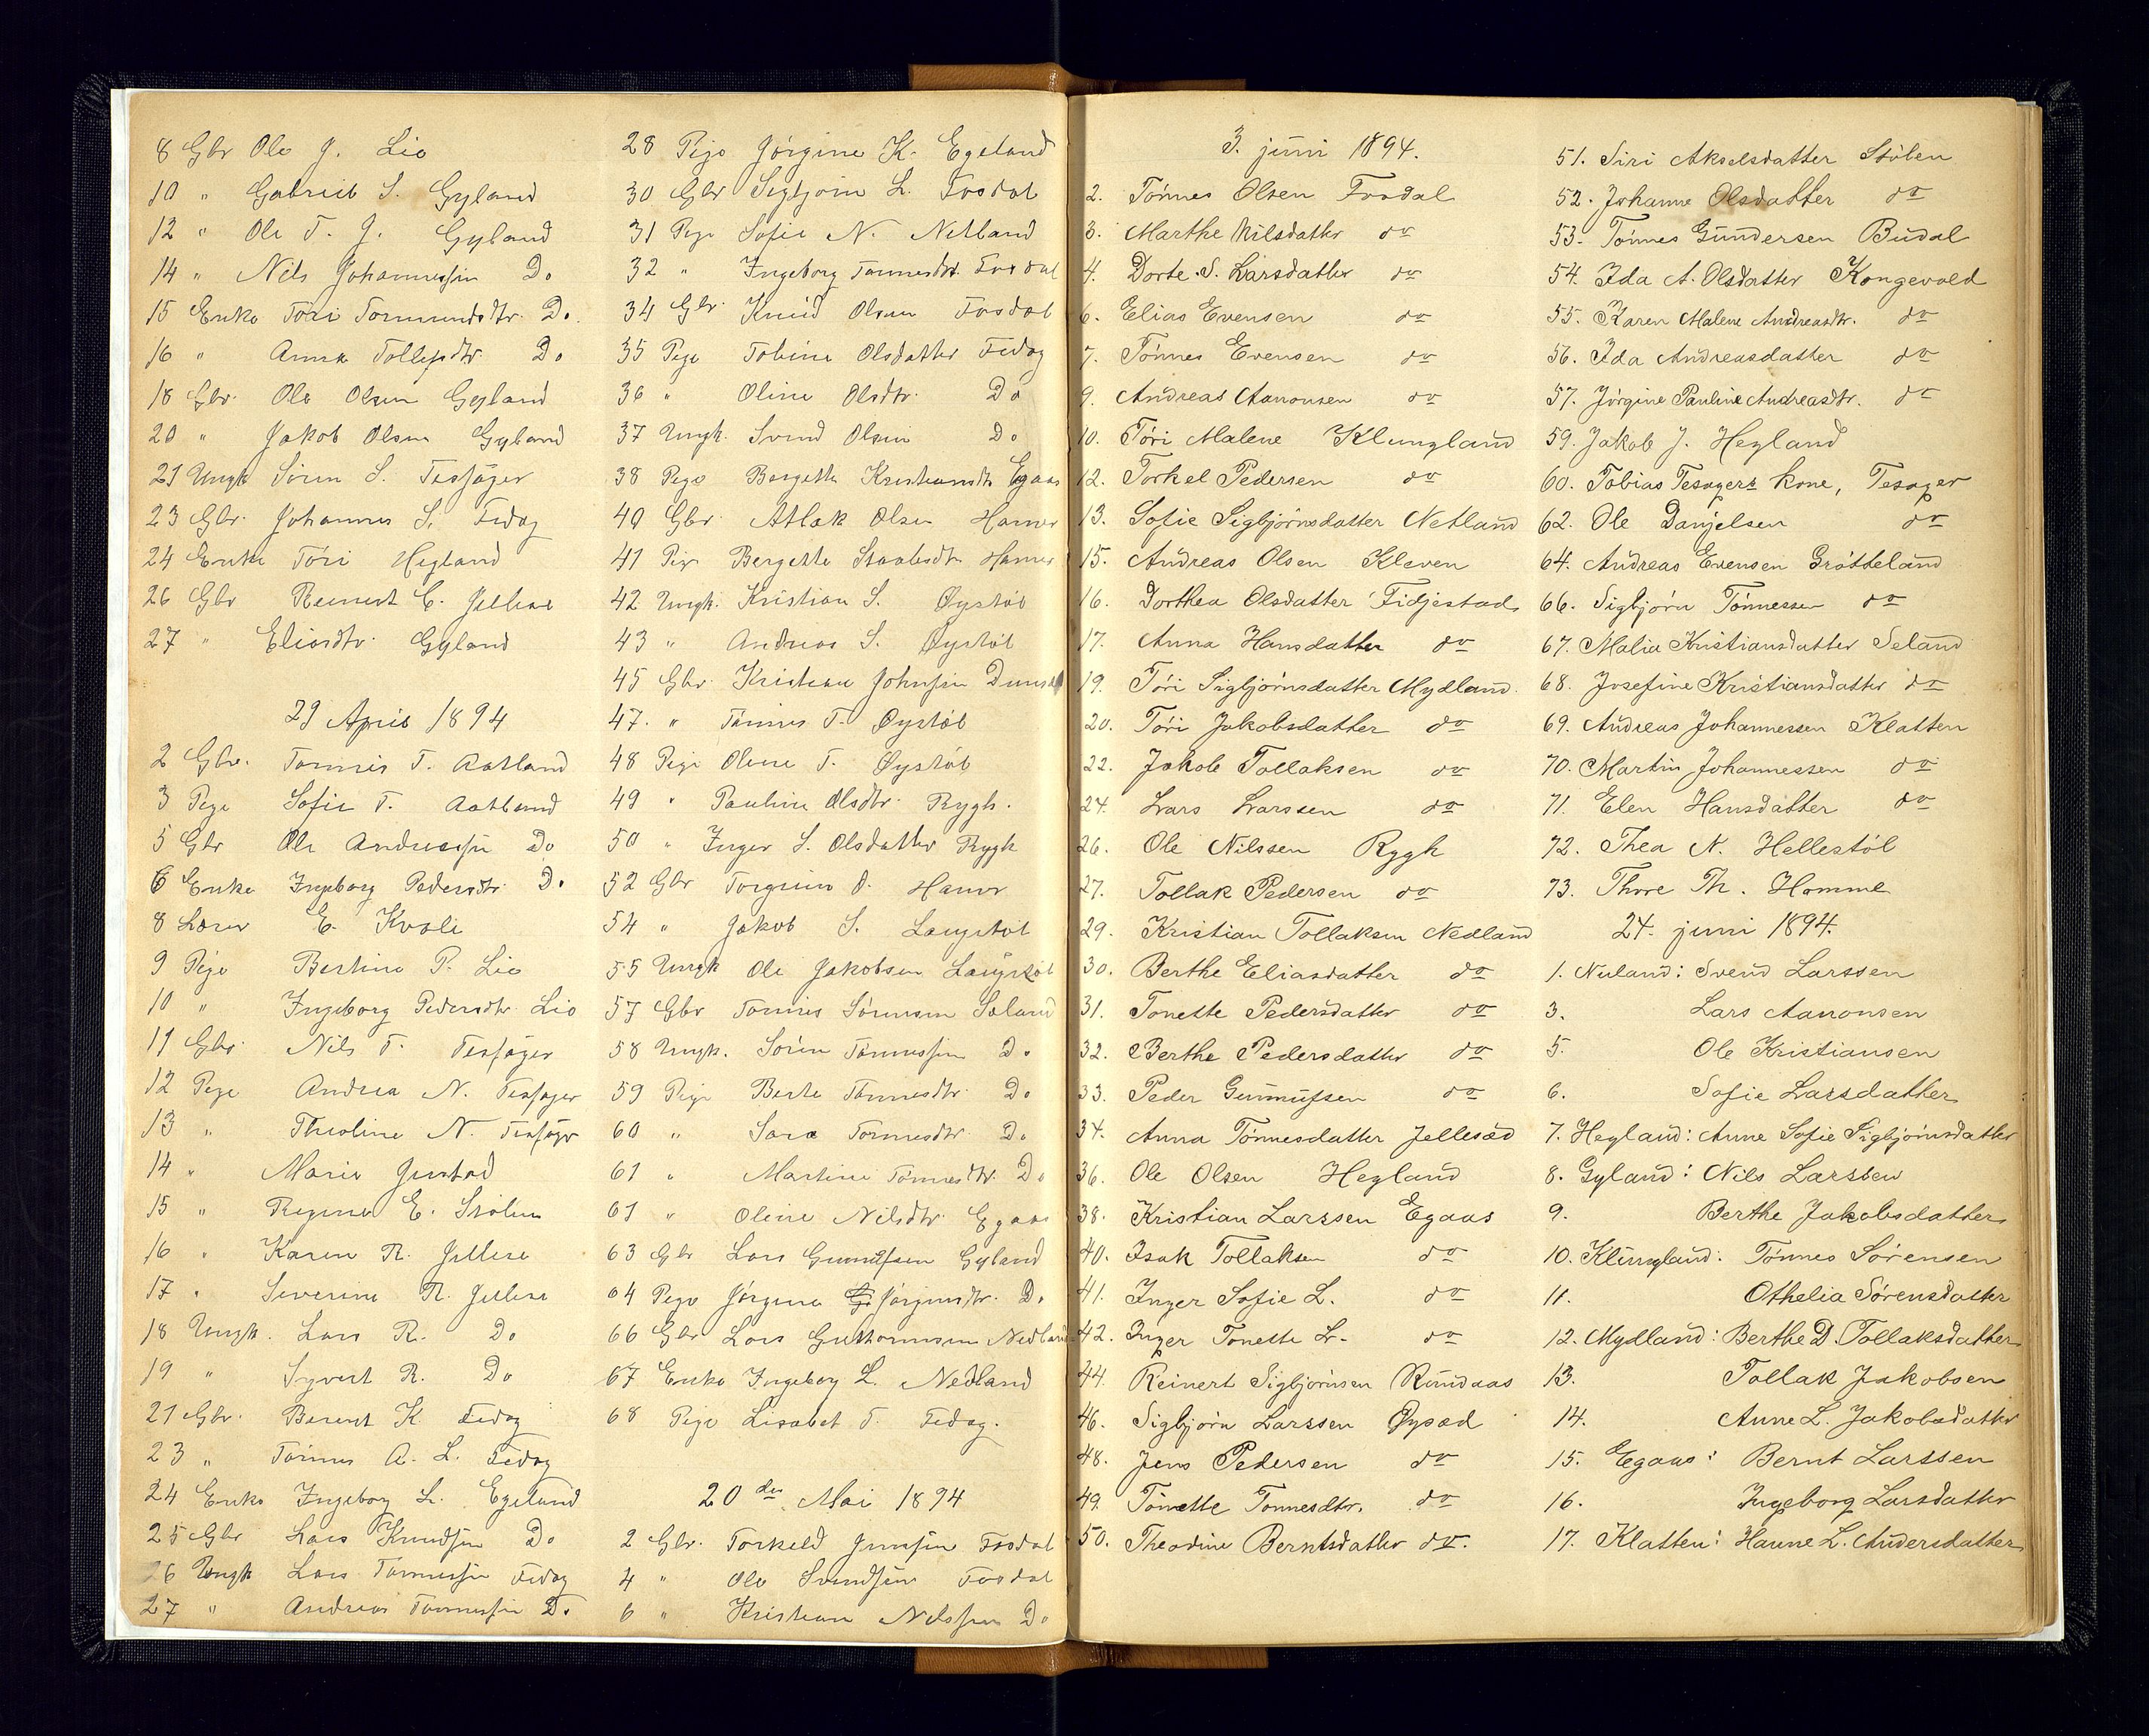 8 Gbr Ole J. Lio
10 " Gabriel S. Gyland
12 " Ole T. J. Gyland
14 " Nils Johannessen Do
15 Enke Töri Tormundsdtr. Do.
16 " Anna Tollefsdtr. Do
18 Gbr. Ole Olsen Gyland
20 " Jakob Olsen Gyland
21 Ungk Sören S. Tesåger
23 Gbr. Johannes S. Fedog
24 Enke Töri Hegland
26 Gbr Reinert E. Jellese
27 " Eliasdtr. Gyland
29 April 1894
2 Gbr. Tønnes T. Aatland
3 Pige Sofie T. Aatland
5 Gbr Ole Andreasen Do
6 Enke Ingeborg Pedersdtr. Do
8 Lærer E. Kvale
9 Pige Bertine P. Lio
10 " Ingeborg Pedersdtr. Lio
11 Gbr. Nils T. Tesåger
12 Pige Andrea N. Tesåger
13 " Theoline N. Tesåger
14 " Marie Justad
15 " Regine E. Stölen
16 " Karen R. Jellese
17 " Severine R. Jellese
18 Ungk. Lars R. Do
19 " Syvert R. Do
21 Gbr. Berent K. Fedog
23 " Tönnes A. L. Fedog
24 Enke Ingeborg L. Egeland
25 Gbr Lars Knudsen Do
26 Ungk Lars Tønnessen Fedog
27 " Andreas Tønnessen Do
28 Pige Jørgine K. Egeland
30 Gbr Sigbjørn L. Fosdal
31 Pige Sofie N. Netland
32 " Ingeborg Tønnesdtr. Fosdal
34 Gbr. Knud Olsen Fosdal
35 Pige Tobine Olsdatter Fedog
36 " Oline Olsdtr. Do
37 Ungk. Svend Olsen Do
38 Pige Bergette Kristiansdtr. Egaas
40 Gbr. Atlak Olsen Hamer
41 Pige Bergette Hamer
42 Ungk. Kristian S. Øystöl
43 " Andreas S. Øystöl
45 Gbr. Kristian Johnsen
47. " Tönnes T. Øystöl
48 Pige Olene T. Øystöl
49 " Pauline Olsdtr. Rygh.
50 " Inger S. Olsdatter Rygh
52 Gbr Torgrim O. Hamer
54 " Jakob S. Laugstöl
55 Ungk Ole Jakobsen Laugstöl
57 Gbr Tønnes Sörensen Seland
58 Ungk. Sören Tønnessen Do
59 Pige Berte Tønnesdtr. Do
60 " Sara Tonnesdtr. Do
61 " Martine Tönnesdtr. Do
61 " Oline Nilsdtr. Egaas
63 Gbr Lars Gunulfsen Gyland
64 Pige Jørgine Jörgensdtr. Do
66 Gbr Lars Guttormsen Nedland
67 Enke Ingeborg L. Nedland
68 Pige Lisabet T. Fedog.
20 de Mai 1894
2 Gbr. Torkeld Jensen Fosdal
4 " Ole Svendsen Fosdal
6 " Kristian Nilssen Do
3. juni 1894.
2. Tönnes Olsen Fosdal
3. Marthe Nilsdatter do
4. Dorte S. Larsdatter do
6. Elias Evensen do
7. Tönnes Evensen do
9. Andreas Aanonsen do
10. Töri Malene Klungland
12. Torkel Pedersen do
13. Sofie Sigbjörnsdatter Netland
15. Andreas Olsen Kleven
16. Dorthea Olsdatter Fidjestad
17. Anna Hansdatter do
19. Töri Sigbjörnsdatter Mydland.
20. Töri Jakobsdatter do
22. Jakob Tollaksen do
24. Lars Larssen do
26. Ole Nilssen Rygh
27. Tollak Pedersen do
29. Kristian Tollaksen Nedland
30. Berthe Eliasdatter do
31. Tonette Pedersdatter do
32. Berthe Pedersdatter do
33. Peder Gunnufsen do
34. Anna Tönnesdatter Jellesæd
36. Ole Olsen Hegland
38. Kristian Larssen Egaas
40. Isak Tollaksen do
41. Inger Sofie L. do
42. Inger Tonette L. do
44. Reinert Sigbjörnsen Rundaas
46. Sigbjörn Larssen Øysæd
48. Jens Pedersen do
49. Tönette Tonnesdtr. do
50. Theodine Berntsdatter do.
51. Siri Akselsdatter Stölen
52. Johanne Olsdatter do
53. Tönnes Gundersen Budal
54. Ida A. Olsdatter Kongevold
55. Karen Malene Andreasdtr. do
56. Ida Andreasdatter do
57. Jörgine Pauline Andreasdtr. do
59. Jakob J. Hegland
60. Tobias Tesagers kone, Tesager
62. Ole Danjelsen do
64. Andreas Evensen Grötteland
66. Sigbjörn Tönnessen do
67. Malia Kristiansdatter Seland
68. Josefine Kristiansdatter do
69. Andreas Johannessen Klatten
70. Martin Johannessen do
71. Elen Hansdatter do
72. Thea N. Hellestöl
73. Thore Th. Homme
24. juni 1894.
1. Nuland: Svend Larssen
3. Lars Aanonsen
5. Ole Kristiansen
6. Sofie Larsdatter
7. Hegland: Anne Sofie Sigbjörnsdatter
8. Gyland: Nils Larssen
9. Berthe Jakobsdatter
10. Klungland: Tönnes Sörensen
11. Othelia Sörensdatter
12. Mydland: Berthe D. Tollaksdatter
13. Tollak Jakobsen
14. Anne L. Jakobsdatter
15. Egaas: Bernt Larssen
16. Ingeborg Larsdatter
17. Klatten: Hanne L. Andersdatter